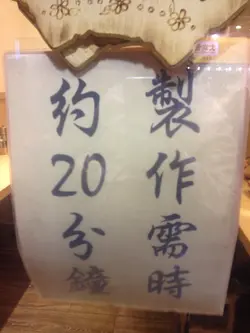 製作需時
約20分鐘